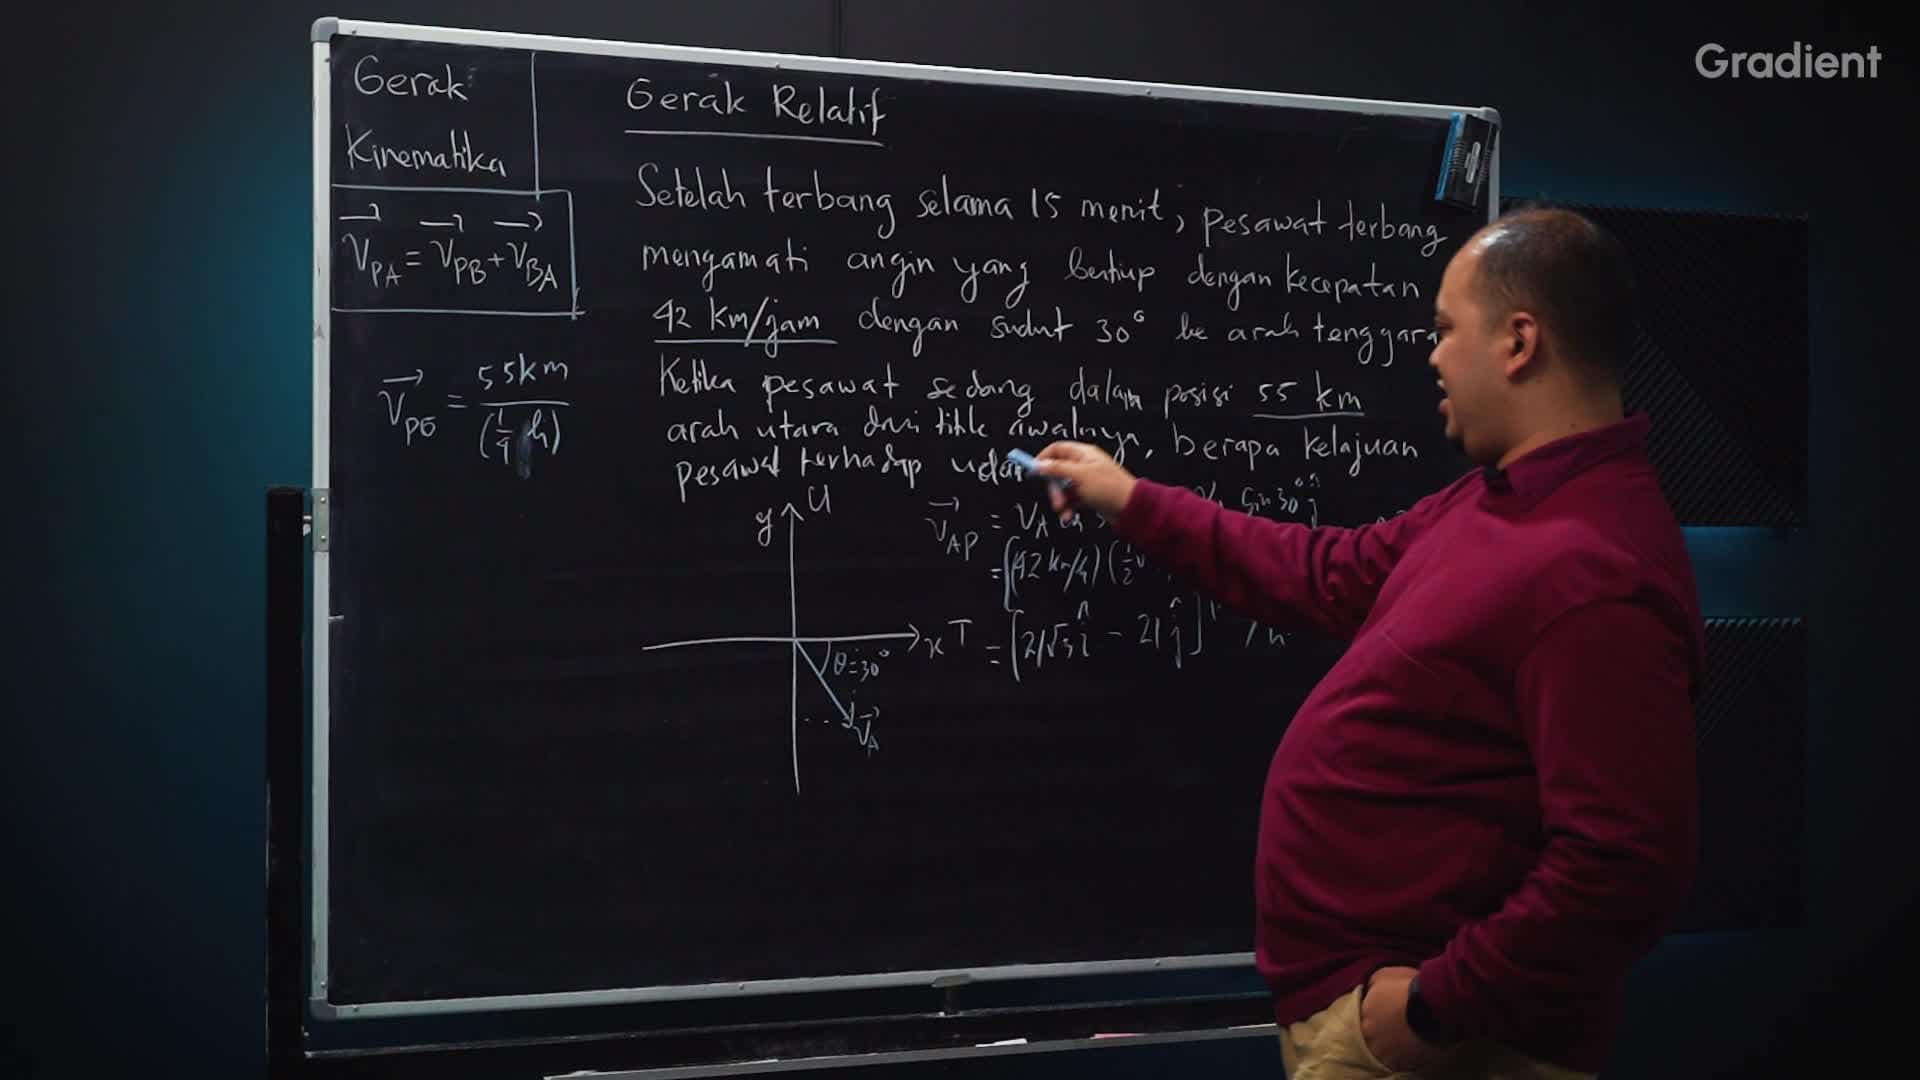 Gradient
Gerak
Kinematika
V_PA = V_PB + V_BA
V_PG = 55 km / (1/4 h)
Gerak Relatif
Setelah terbang selama 15 menit, pesawat terbang
mengamati angin yang bertiup dengan kecepatan
42 km/jam dengan sudut 30° ke arah tenggara
Ketika pesawat sedang dalam posisi 55 km
arah utara dari titik awalnya, berapa kelajuan
pesawat terhadap
y U
x T
θ = 30°
V_A
V_AP = V_A
sin 30° ĵ
= [(42 km/h) (1/2
= [21√3 î - 21 ĵ]